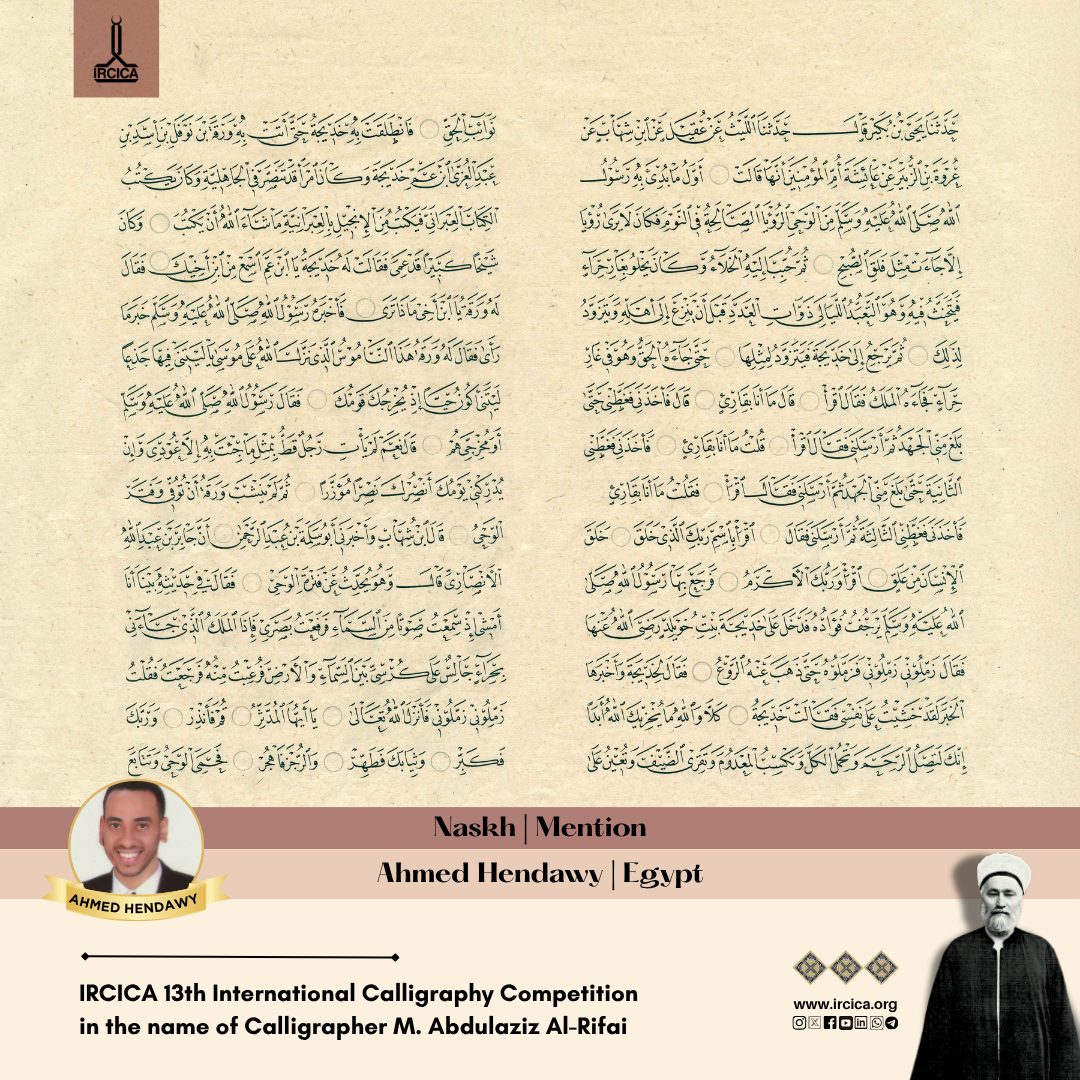 IRCICA
حدثنا يحيى بن بكير قال حدثنا الليث عن عقيل عن ابن شهاب عن
عروة بن الزبير عن عائشة أم المؤمنين أنها قالت ○ أول ما بدئ به رسول
الله صلى الله عليه وسلم من الوحي الرؤيا الصالحة في النوم فكان لا يرى رؤيا
إلا جاءت مثل فلق الصبح ○ ثم حبب إليه الخلاء وكان يخلو بغار حراء
فيتحنث فيه وهو التعبد الليالي ذوات العدد قبل أن ينزع إلى أهله ويتزود
لذلك ○ ثم يرجع إلى خديجة فيتزود لمثلها ○ حتى جاءه الحق وهو في غار
حراء فجاءه الملك فقال اقرأ ○ قال ما أنا بقارئ ○ قال فأخذني فغطني حتى
بلغ مني الجهد ثم أرسلني فقال اقرأ ○ قلت ما أنا بقارئ ○ فأخذني فغطني
الثانية حتى بلغ مني الجهد ثم أرسلني فقال اقرأ ○ فقلت ما أنا بقارئ
فأخذني فغطني الثالثة ثم أرسلني فقال ○ اقرأ باسم ربك الذي خلق ○ خلق
الإنسان من علق ○ اقرأ وربك الأكرم ○ فرجع بها رسول الله صلى
الله عليه وسلم يرجف فؤاده فدخل على خديجة بنت خويلد رضي الله عنها
فقال زملوني زملوني فزملوه حتى ذهب عنه الروع ○ فقال لخديجة وأخبرها
الخبر لقد خشيت على نفسي فقالت خديجة ○ كلا والله ما يخزيك الله أبدا
إنك لتصل الرحم وتحمل الكل وتكسب المعدوم وتقري الضيف وتعين على
نوائب الحق ○ فانطلقت به خديجة حتى أتت به ورقة بن نوفل بن أسد بن
عبد العزى ابن عم خديجة وكان امرأ قد تنصر في الجاهلية وكان يكتب
الكتاب العبراني فيكتب من الإنجيل بالعبرانية ما شاء الله أن يكتب ○ وكان
شيخا كبيرا قد عمي فقالت له خديجة يا ابن عم اسمع من ابن أخيك ○ فقال
له ورقة يا ابن أخي ماذا ترى ○ فأخبره رسول الله صلى الله عليه وسلم خبر ما
رأى فقال له ورقة هذا الناموس الذي نزل الله على موسى يا ليتني فيها جذعا
ليتني أكون حيا إذ يخرجك قومك ○ فقال رسول الله صلى الله عليه وسلم
أومخرجي هم ○ قال نعم لم يأت رجل قط بمثل ما جئت به إلا عودي وإن
يدركني يومك أنصرك نصرا مؤزرا ○ ثم لم ينشب ورقة أن توفي وفتر
الوحي ○ قال ابن شهاب وأخبرني أبو سلمة بن عبد الرحمن ○ أن جابر بن عبد الله
الأنصاري قال وهو يحدث عن فترة الوحي ○ فقال في حديثه بينا أنا
أمشي إذ سمعت صوتا من السماء فرفعت بصري فإذا الملك الذي جاءني
بحراء جالس على كرسي بين السماء والأرض فرعبت منه فرجعت فقلت
زملوني زملوني فأنزل الله تعالى ○ يا أيها المدثر ○ قم فأنذر ○ وربك
فكبر ○ وثيابك فطهر ○ والرجز فاهجر ○ فحمي الوحي وتتابع
Naskh | Mention
Ahmed Hendawy | Egypt
AHMED HENDAWY
IRCICA 13th International Calligraphy Competition
in the name of Calligrapher M. Abdulaziz Al-Rifai
www.ircica.org